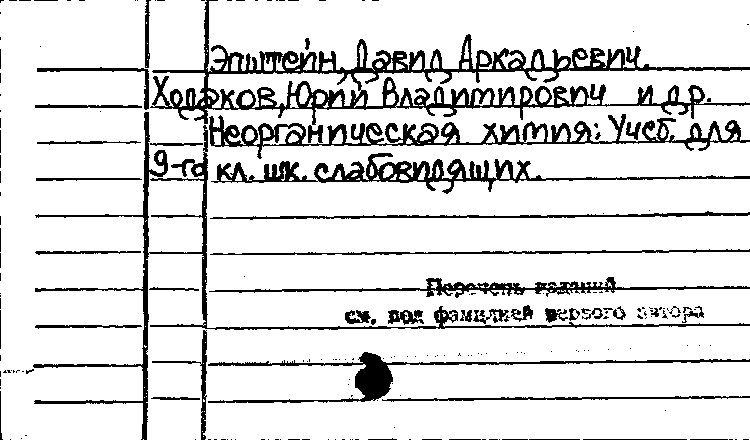 Эпштейн, Давид Аркадьевич.
Ходаков, Юрий Владимирович и др.
Неорганическая химия: Учеб. для
9-го кл. шк. слабовидящих.
Перечень изданий
см. под фамилией первого автора